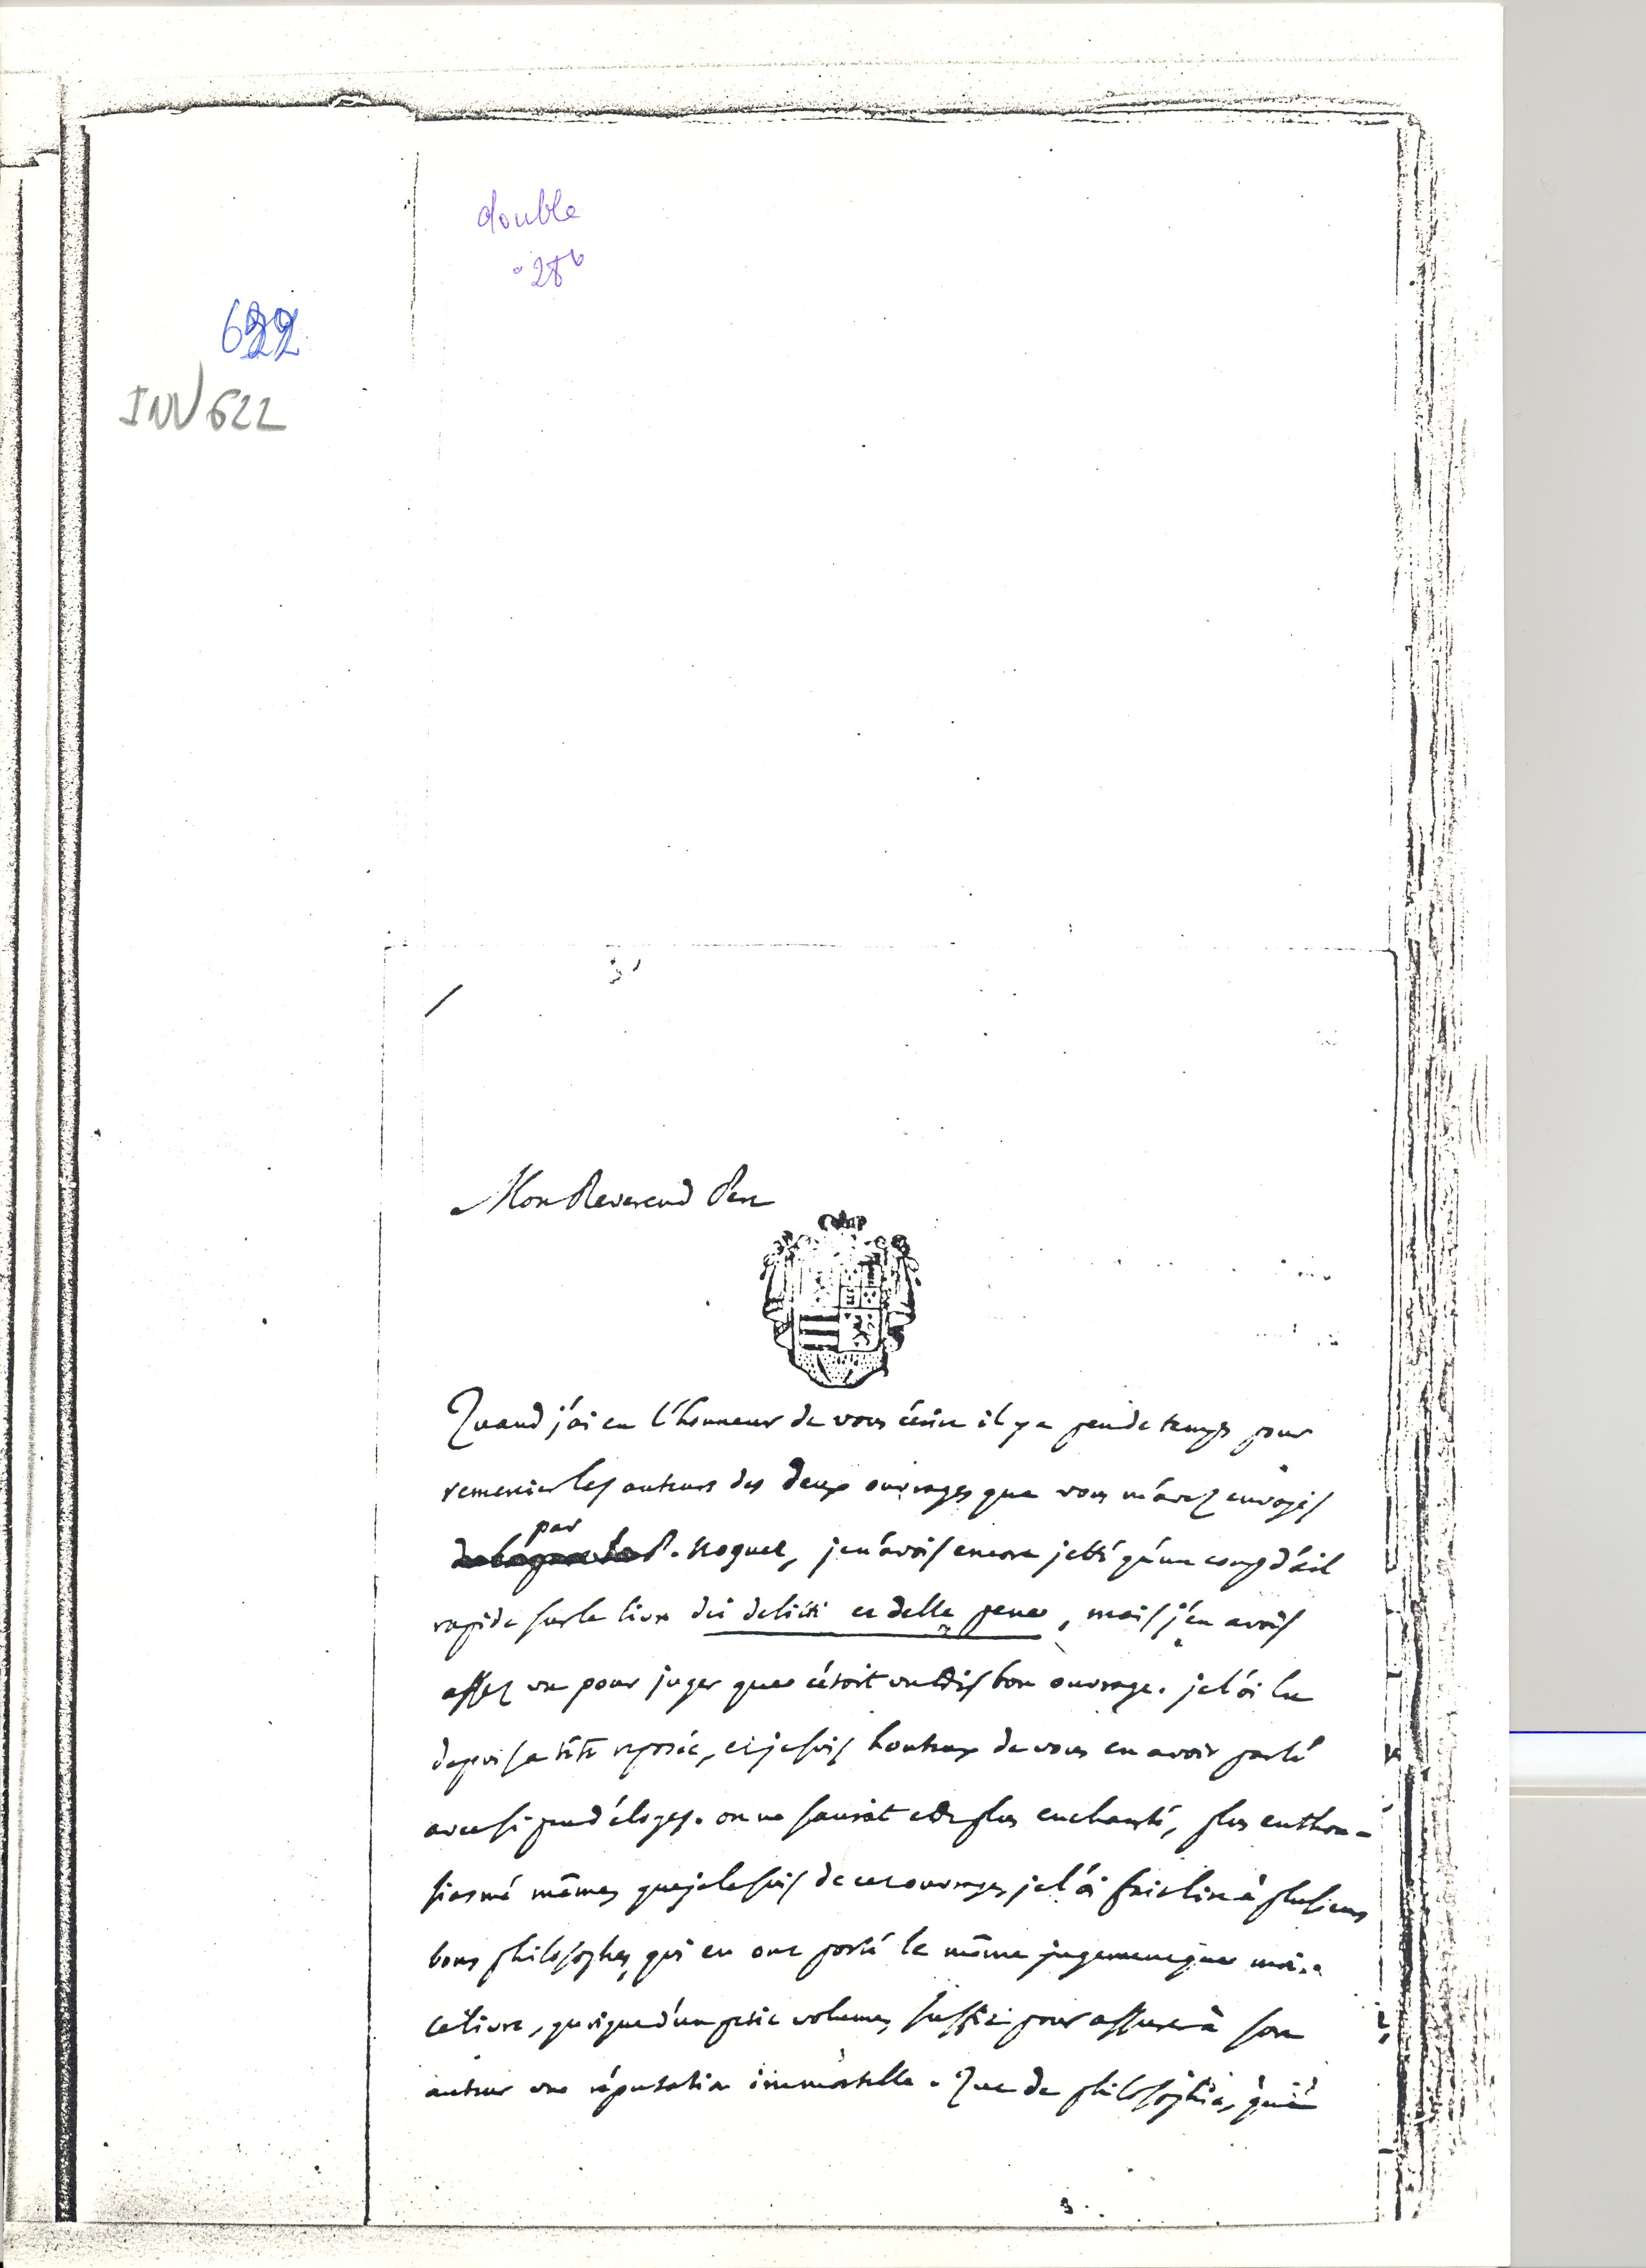 double
28b
622
INV 622
Mon Reverend Pere
Quand j'ai eu l'honneur de vous écrire il y a peu de temps pour
remercier les auteurs des deux ouvrages que vous m'avez envoyés
par
P. Noguez, je n'avois encore jetté qu'un coup d'œil
rapide sur le livre dei delitti e delle pene, mais j'en avois
assez vu pour juger que c'étoit un très bon ouvrage. je l'ai lu
depuis a tête reposée, et je suis honteux de vous en avoir parlé
avec si peu d'éloges. on ne sauroit etre plus enchanté, plus enthou-
siasmé même, que je le suis de cet ouvrage, je l'ai fait lire à plusieurs
bons philosophes, qui en ont porté le même jugement que moi.
ce livre, quoique d'un petit volume, suffit pour assurer à son
auteur une réputation immortelle. Que de philosophie, que